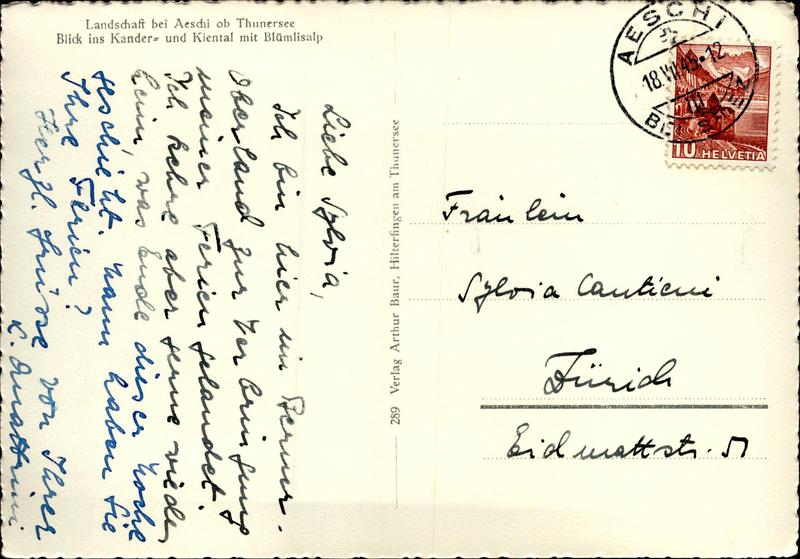 Landschaft bei Aeschi ob Thunersee
Blick ins Kander- und Kiental mit Blümlisalp
Liebe Sylvia,
Ich bin hier im Berner-
Oberland zur Verbringung
meiner Ferien gelandet.
Ich kehre aber gerne wieder
heim, was Ende dieser Woche
geschieht. Wann haben Sie
Ihre Ferien?
Herzl. Grüsse von Ihrer
289 Verlag Arthur Baur, Hilterfingen am Thunersee
AESCHI
18.VII.45-12
BEI SPIEZ
10 HELVETIA
Fräulein
Sylvia Cantieni
Zürich
Eidmattstr. 51